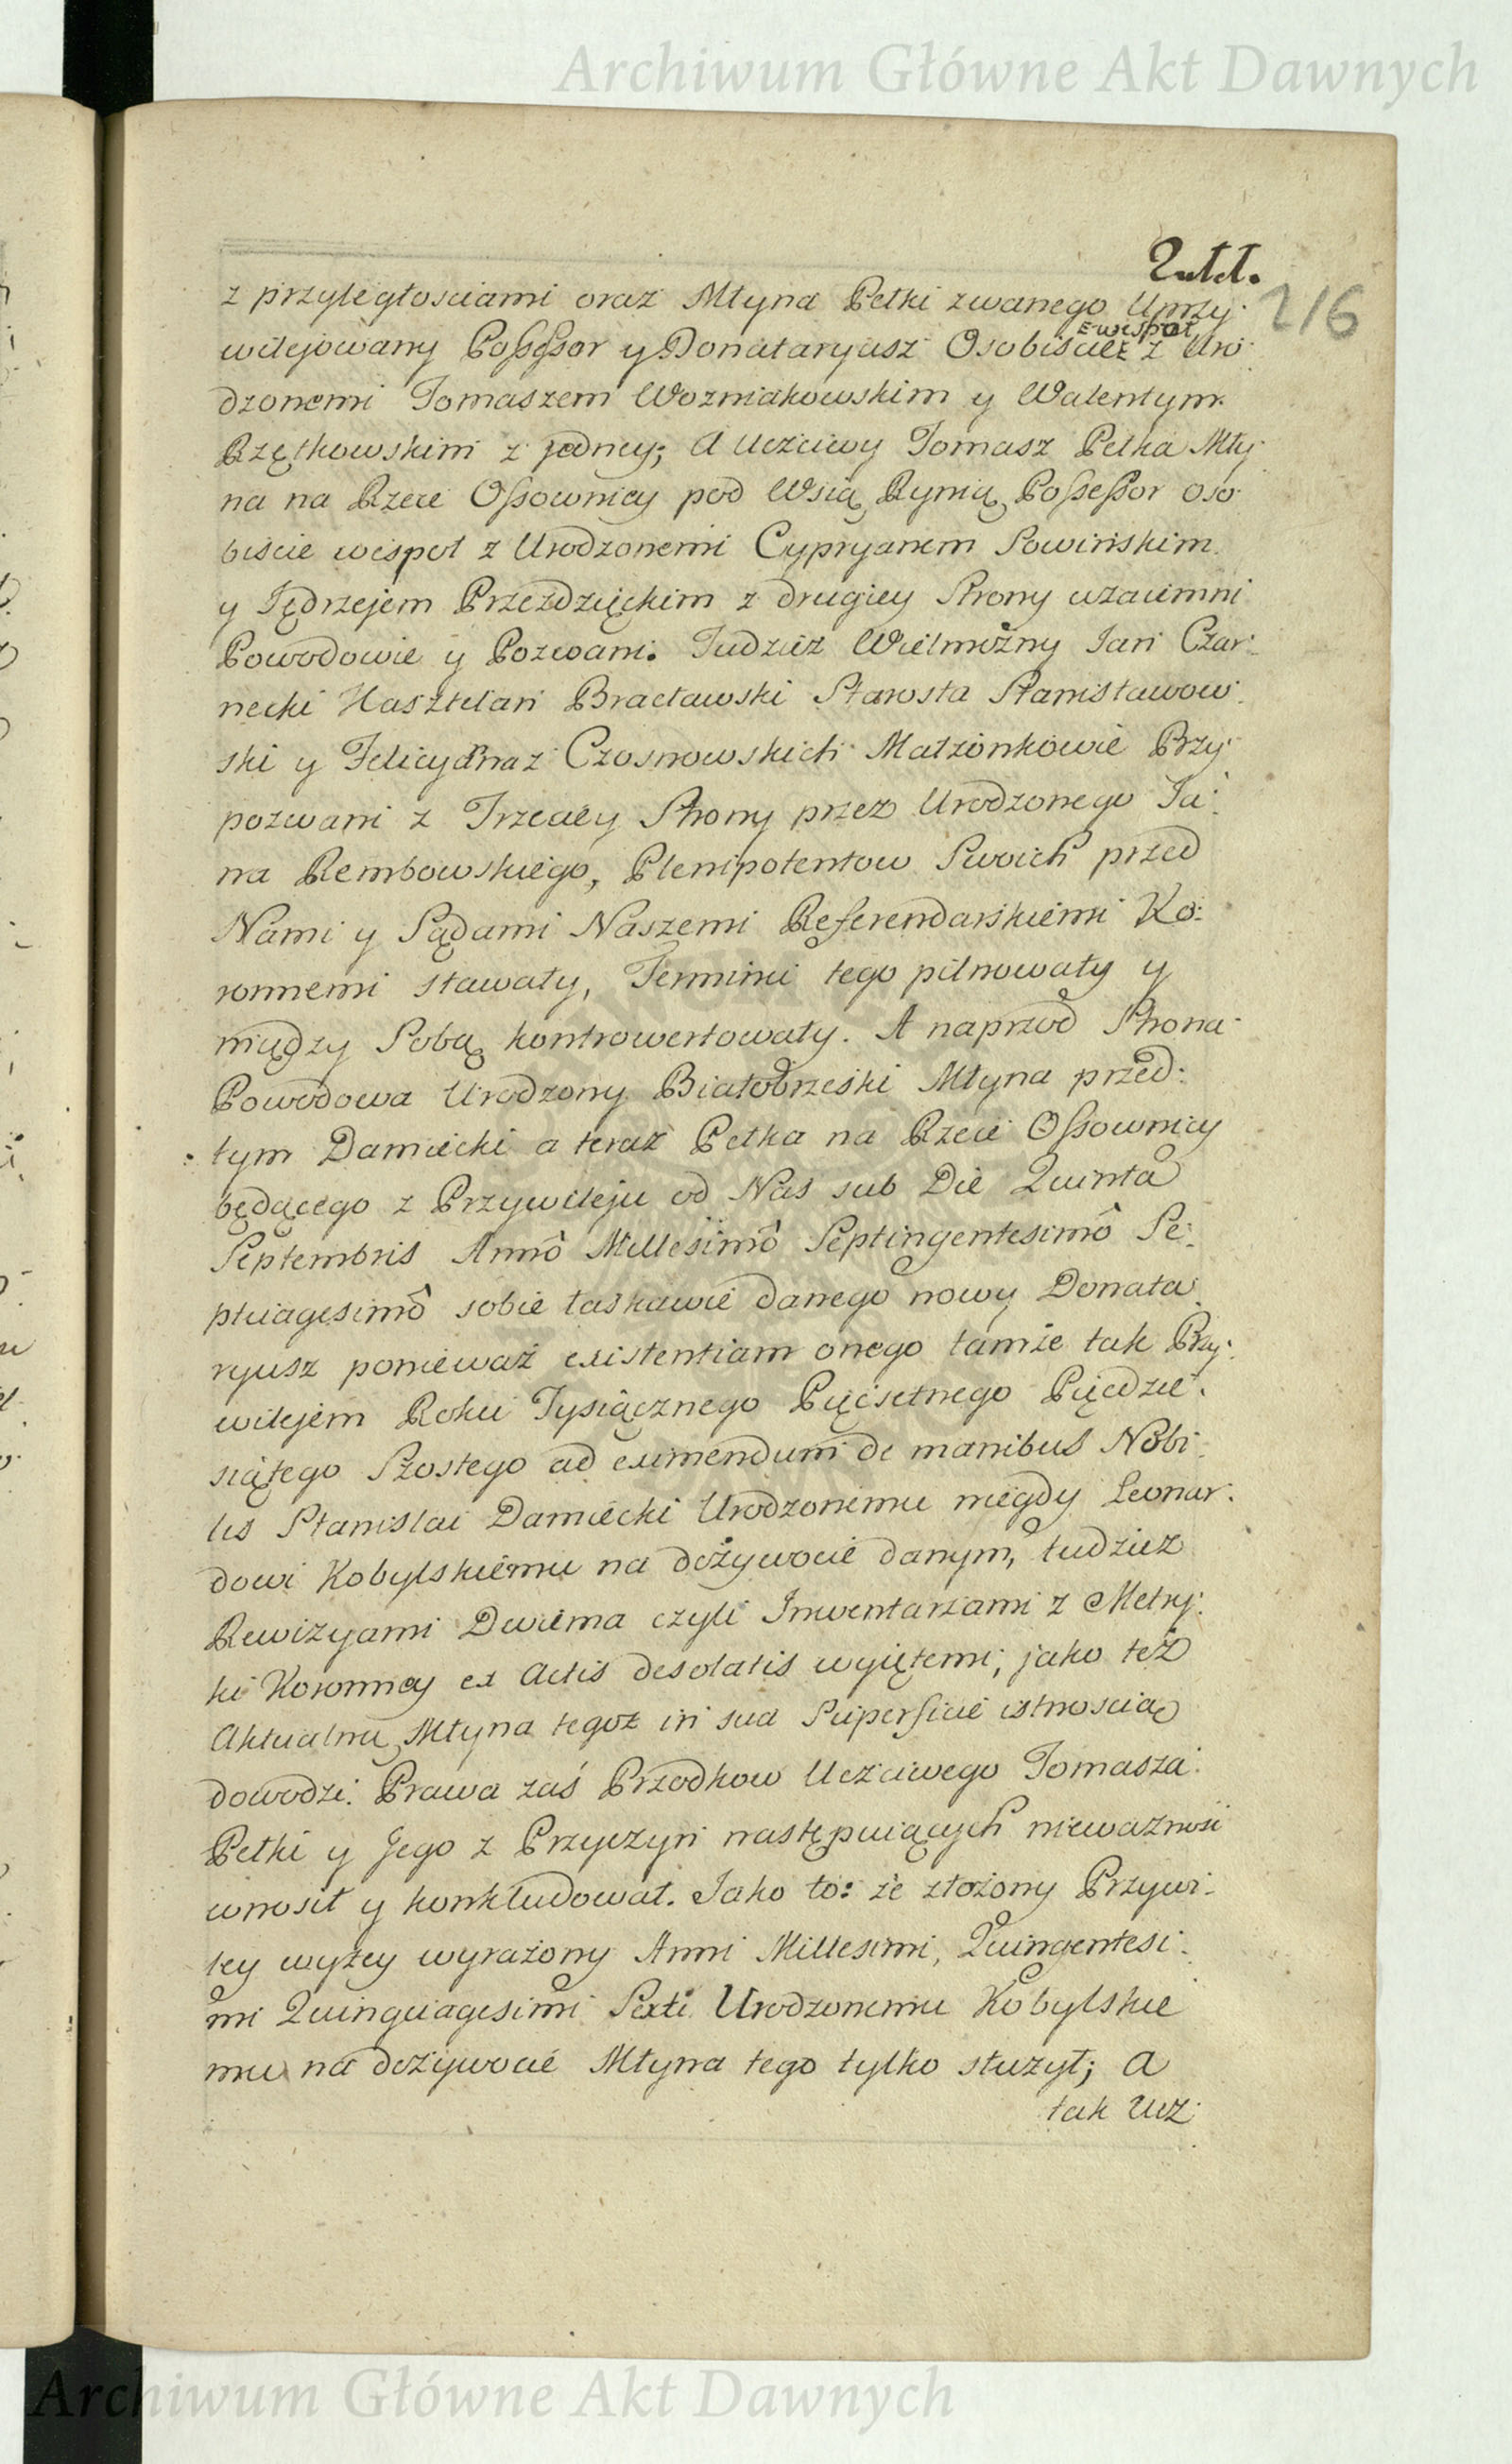 Archiwum Główne Akt Dawnych
216
z przyległosciami oraz Młyna Pełki zwanego Uprzy:
wilejowany Possessor y Donataryusz Osobiscie wespoł z Uro:
dzonemi Tomaszem Wozniakowskim y Walentym
Rzętkowskim z jedney; A Uczciwy Tomasz Pełka Mły:
na na Rzece Ossownicy pod Wsią Rynią Possessor oso:
biscie wespoł z Urodzonemi Cypryanem Sowińskim
y Jędrzejem Przezdzięckim z drugiey Strony wzaiemni
Powodowie y Pozwani. Tudziez Wielmożny Jan Czar:
necki Kasztelan Bracławski Starosta Stanisławow:
ski y Felicyanna z Czosnowskich Małzonkowie Przy:
pozwani z Trzeciey Strony przez Urodzonego Ja:
na Rembowskiego, Plenipotentow Swoich przed
Nami y Sądami Naszemi Referendarskiemi Ko:
ronnemi stawały, Terminu tego pilnowały y
między Sobą kontrowertowały. A naprzod Strona
Powodowa Urodzony Białobrzeski Młyna przed:
tym Damiecki a teraz Pełka na Rzece Ossownicy
będącego z Przywileju od Nas sub Die Quinta
Septembris Annô Millesimô Septingentesimô Se:
ptuagesimô sobie łaskawie danego nowy Donata:
ryusz ponieważ existentiam onego tamże tak Przy:
wilejem Roku Tysiącznego Pięcsetnego Pięcdzie:
siątego Szostego ad eximendum de manibus Nobi:
lis Stanislai Damiecki Urodzonemu niegdy Leonar:
dowi Kobylskiemu na dożywocie danym, tudziez
Rewizyami Dwiema czyli Inwentarzami z Metry:
ki Koronney ex Actis desolatis wyiętemi, jako też
Aktualną Młyna tegoz in sua Superficie istnoscią
dowodzi. Prawa zaś Przodkow Uczciwego Tomasza
Pełki y Jego z Przyczyn następuiących niewaznosc
wnosił y konkludował. Jako to: że złożony Przywi:
ley wyżey wyrażony Anni Millesimi, Quingentesi:
mi Quinquagesimi Sexti Urodzonemu Kobylskie
mu na dożywocie Młyna tego tylko służył; a
tak Ucz:
Archiwum Główne Akt Dawnych